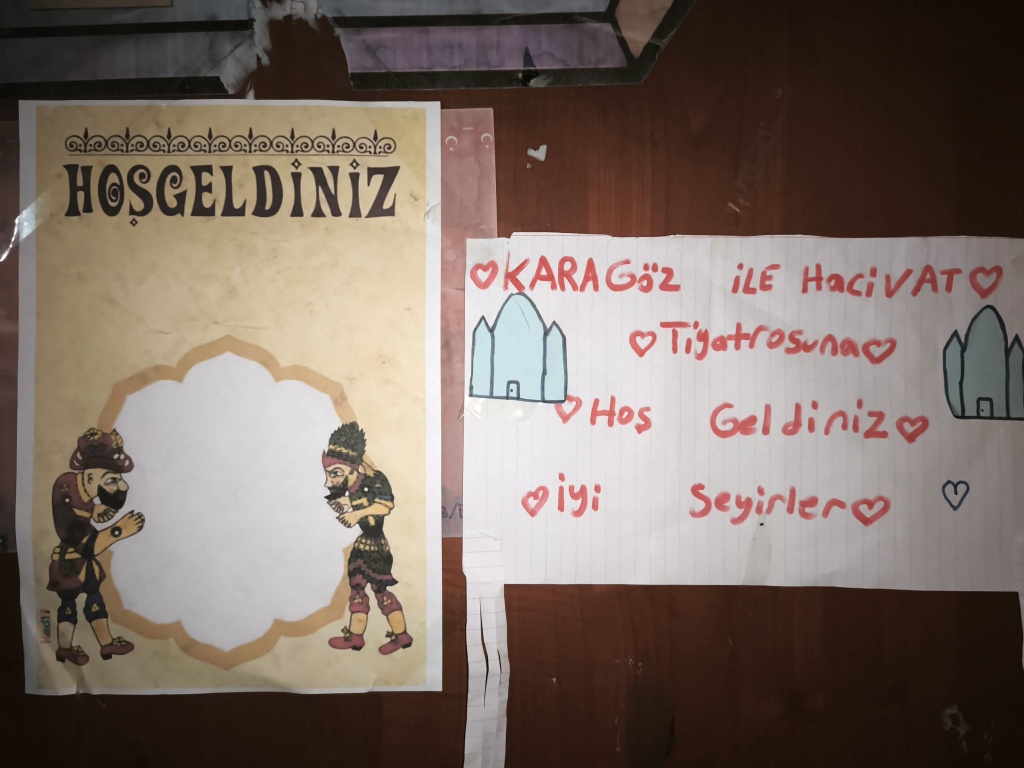 HOŞGELDİNİZ
KARAGöZ iLE HaciVAT
Tiyatrosuna
Hoş Geldiniz
iyi Seyirler